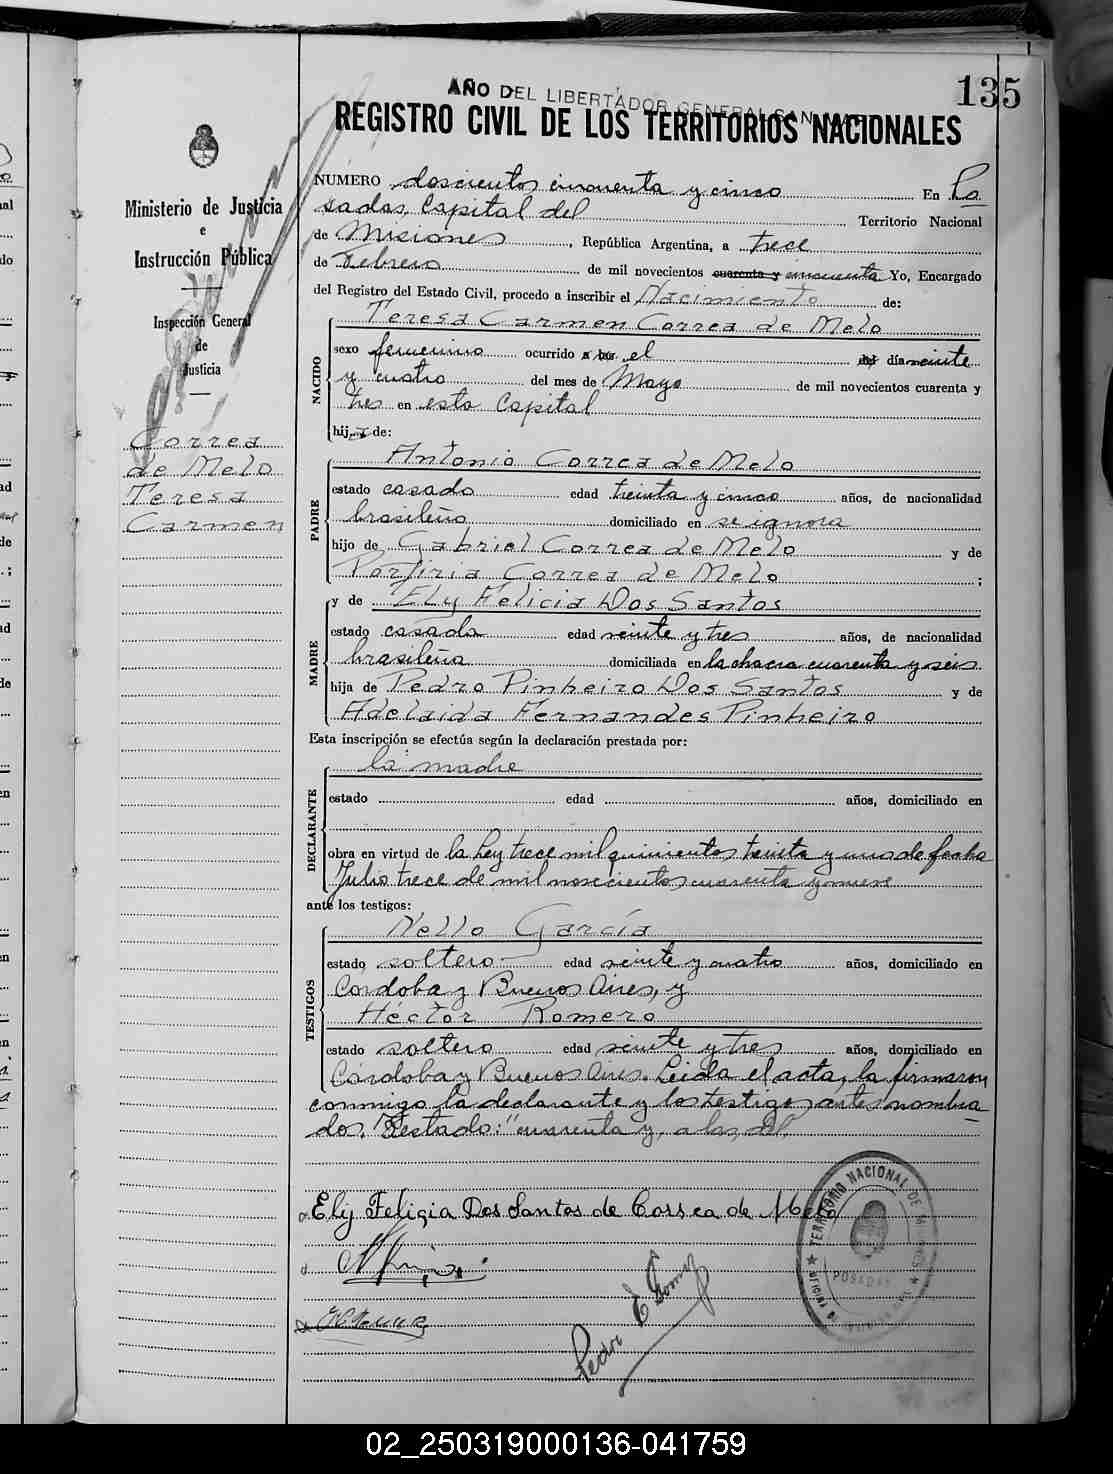 135
AÑO DEL LIBERTADOR GENERAL SAN MAR
REGISTRO CIVIL DE LOS TERRITORIOS NACIONALES
Ministerio de Justicia
e
Instrucción Pública
Inspección General
de
Justicia
Correa
de Melo
Teresa
Carmen
NÚMERO doscientos cincuenta y cinco En Po
sadas, Capital del Territorio Nacional
de Misiones, República Argentina, a trece
de Febrero de mil novecientos cuarenta y cincuenta Yo, Encargado
del Registro del Estado Civil, procedo a inscribir el Nacimiento de:
NACIDO
Teresa Carmen Correa de Melo
sexo femenino ocurrido a las el del día veinte
y cuatro del mes de Mayo de mil novecientos cuarenta y
tres en esta Capital
hija de:
PADRE
Antonio Correa de Melo
estado casado edad treinta y cinco años, de nacionalidad
brasileño domiciliado en se ignora
hijo de Gabriel Correa de Melo y de
Porfiria Correa de Melo ;
MADRE
y de Ely Felicia Dos Santos
estado casada edad veinte y tres años, de nacionalidad
brasileña domiciliada en la chacra cuarenta y seis
hija de Pedro Pinheiro Dos Santos y de
Adelaida Fernandes Pinheiro
Esta inscripción se efectúa según la declaración prestada por:
DECLARANTE
la madre
estado edad años, domiciliado en
obra en virtud de la Ley trece mil quinientos treinta y uno de fecha
Julio trece de mil novecientos cuarenta y nueve
ante los testigos:
TESTIGOS
Nello García
estado soltero edad veinte y cuatro años, domiciliado en
Córdoba y Buenos Aires, y
Héctor Romero
estado soltero edad veinte y tres años, domiciliado en
Córdoba y Buenos Aires. Leída el acta, la firmaron
conmigo la declarante y los testigos antes nombra
dos. Testado: "cuarenta y, a las, del,
Elij Feligia Dos Santos de Correa de Melo
Pedro E Gomez
TERRITORIO NACIONAL DE MISIONES
POSADAS
OFICINA
02_250319000136-041759